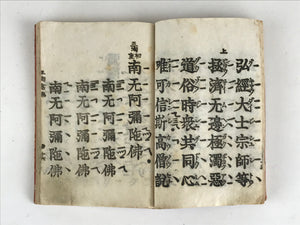 弘經大士宗師等
拯濟无邊極濁惡
道俗時衆共同心
唯可信斯高僧說
南无阿彌陀佛
南无阿彌陀佛
南无阿彌陀佛
南无阿彌陀佛